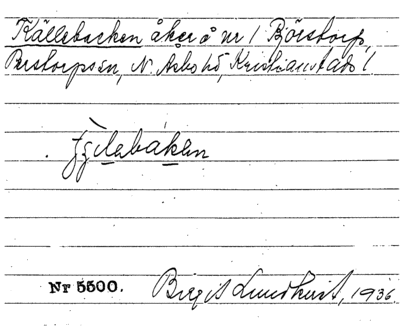 Källebacken åker å nr 1 Börstorp,
Perstorps sn, N. Åsbo hd, Kristianstads l
Nr 5500. Birgit Lundkvist, 1936.